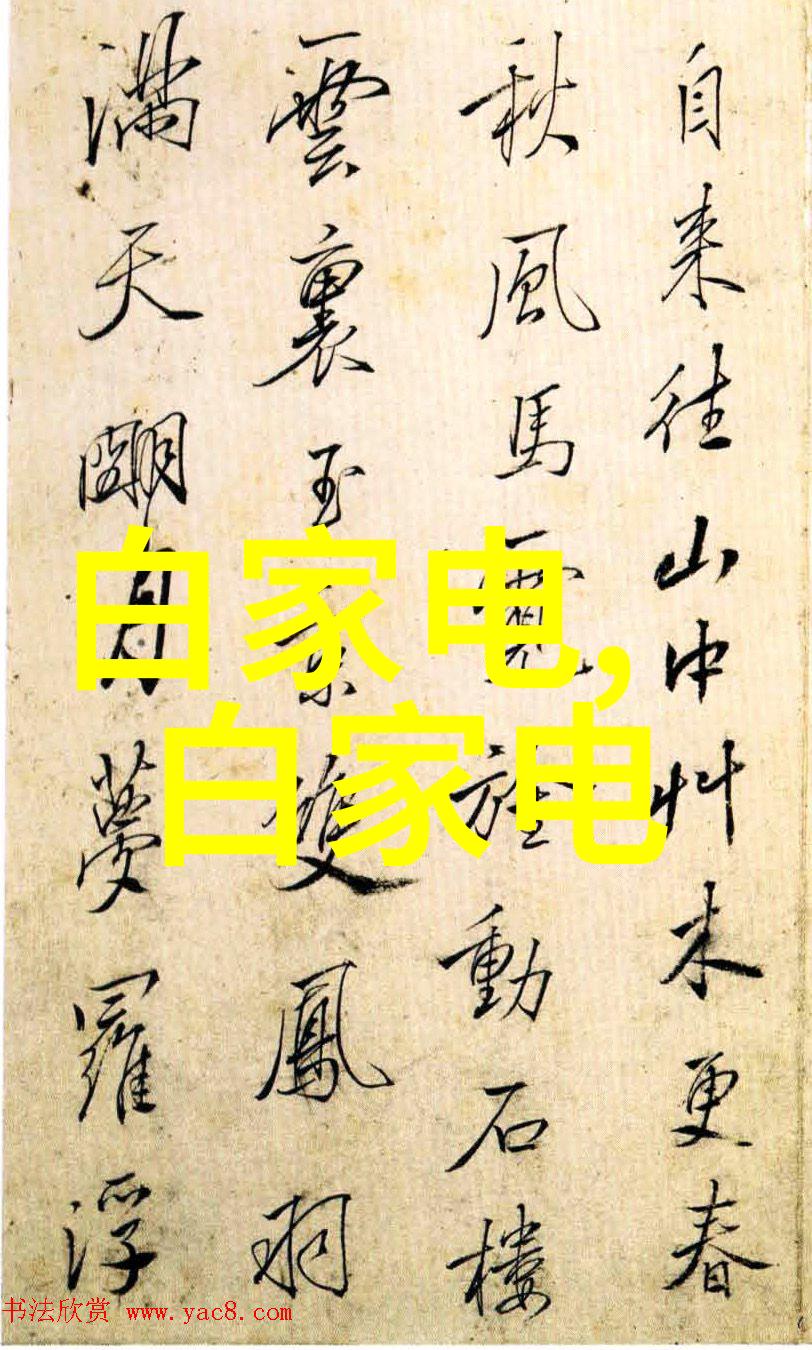 自来往山中艸木更春
秋風馬霓旌動石樓
雲裏玉京雙鳳羽
滿天朙月夢羅浮
白家电,
白家电
书法欣赏 www.yac8.com